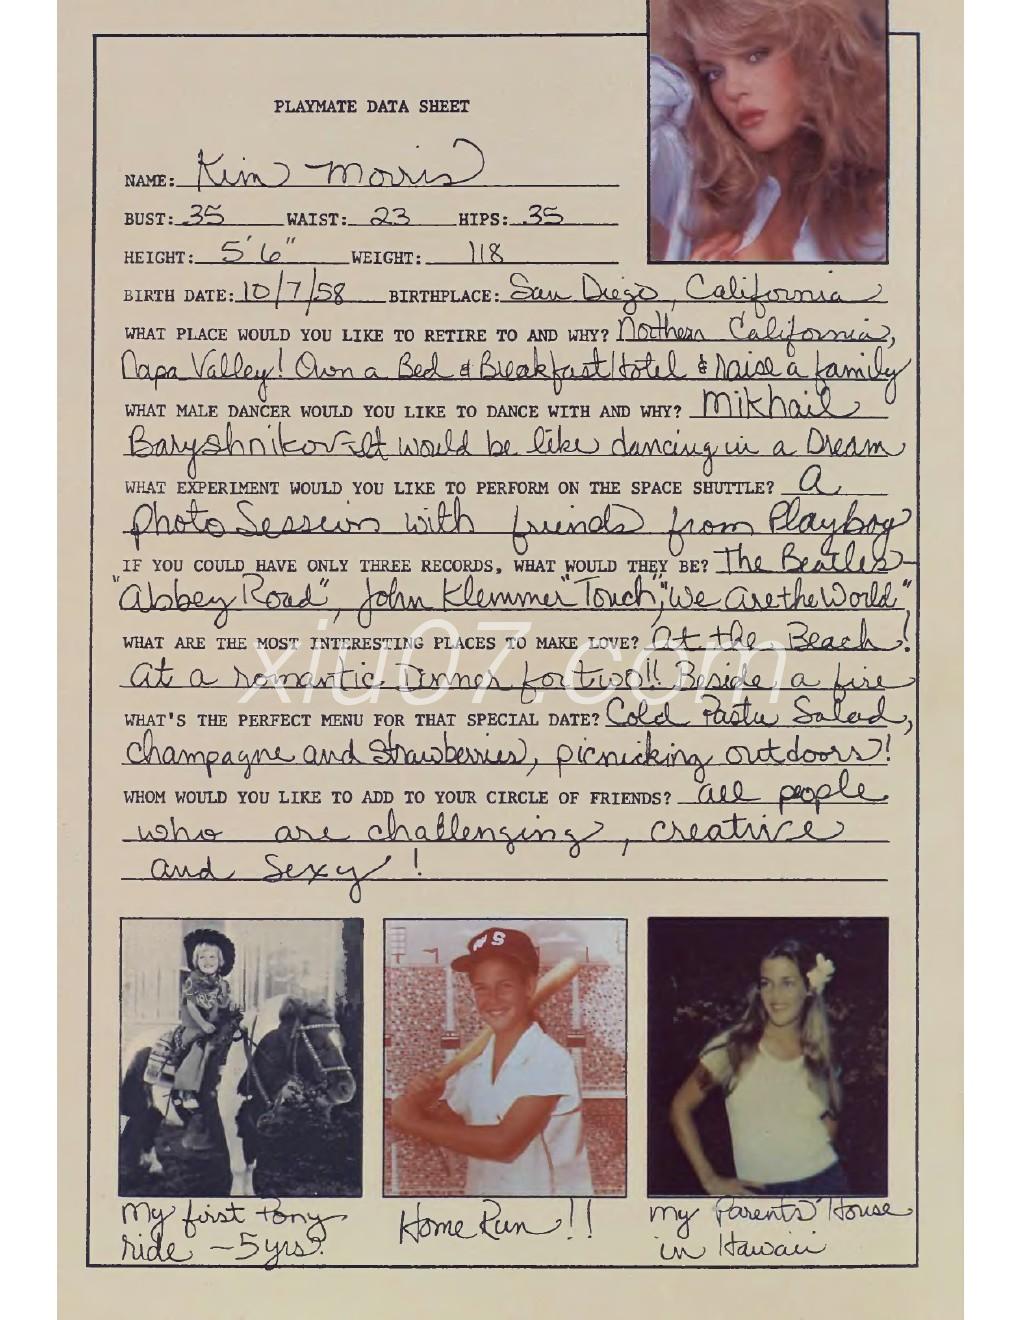 PLAYMATE DATA SHEET
NAME: Kim Morris
BUST: 35 WAIST: 23 HIPS: 35
HEIGHT: 5'6" WEIGHT: 118
BIRTH DATE: 10/7/58 BIRTHPLACE: San Diego, California
WHAT PLACE WOULD YOU LIKE TO RETIRE TO AND WHY? Northern California,
Napa Valley! Own a Bed & Breakfast Hotel & raise a family
WHAT MALE DANCER WOULD YOU LIKE TO DANCE WITH AND WHY? Mikhail
Baryshnikov-It would be like dancing in a Dream
WHAT EXPERIMENT WOULD YOU LIKE TO PERFORM ON THE SPACE SHUTTLE? A
photo Session with friends from Playboy
IF YOU COULD HAVE ONLY THREE RECORDS, WHAT WOULD THEY BE? The Beatles-
"Abbey Road", John Klemmer "Touch", "We Are the World."
WHAT ARE THE MOST INTERESTING PLACES TO MAKE LOVE? At the Beach!
At a romantic Dinner for two!! Beside a fire
xiu07.com
WHAT'S THE PERFECT MENU FOR THAT SPECIAL DATE? Cold Pasta Salad,
champagne and Strawberries, picnicking outdoors!
WHOM WOULD YOU LIKE TO ADD TO YOUR CIRCLE OF FRIENDS? all people
who are challenging, creative
and Sexy!
S
My first Pony
ride - 5 yrs.
Home Run!!
My Parents' House
in Hawaii